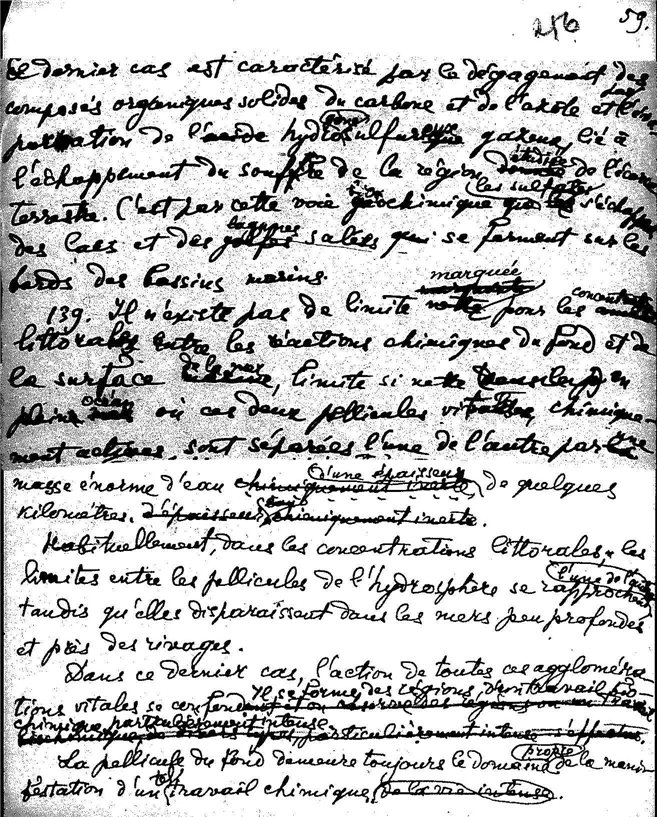 256 59.
Ce dernier cas est caractérisé par le dégagement des
composés organiques solides du carbone et de l'azote et
de l' hydrogène sulfuré gazeux, lié à
l'échappement du souffre de la région étudiée de l'écorce
terrestre. C'est par cette voie géochimique que les sulfates s'échappent
des lacs et des lagunes salées qui se forment sur les
bords des bassins marins.
139. Il n'existe pas de limite marquée pour les concentrations
littorales entre les réactions chimiques du fond et de
la surface de la mer, limite si nette en
plein océan où ces deux pellicules vitales, chimique-
ment actives, sont séparées l'une de l'autre par une
masse énorme d'eau d'une épaisseur de quelques
kilomètres, d'épaisseur chimiquement inerte.
Habituellement, dans les concentrations littorales, les
limites entre les pellicules de l'hydrosphère se rapprochent l'une de l'autre
tandis qu'elles disparaissent dans les mers peu profondes
et près des rivages.
Dans ce dernier cas, l'action de toutes ces aggloméra-
tions vitales se confond. Il se forme des régions d'un travail bio-
chimique particulièrement intense.
La pellicule du fond demeure toujours le domaine propre de la mani-
festation d'un tel travail chimique, de la vie intense.